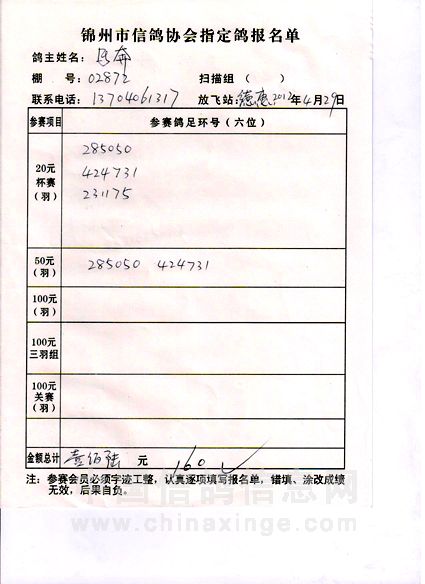 锦州市信鸽协会指定鸽报名单
鸽主姓名：马奔
棚 号：02872 扫描组（ ）
联系电话：13704061317 放飞站：德惠2012年4月29日
参赛项目 参赛鸽足环号（六位）
20元
杯赛
（羽）
285050
424731
231175
50元
（羽）
285050 424731
100元
（羽）
100元
三羽组
100元
关赛
（羽）
金额总计 壹佰陆 元 160
注：参赛会员必须字迹工整，认真逐项填写报名单，错填、涂改成绩
无效，后果自负。
中国信鸽信息网
www.chinaxinge.com